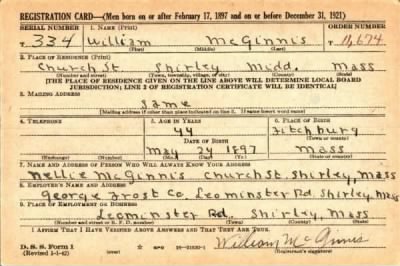 REGISTRATION CARD—(Men born on or after February 17, 1897 and on or before December 31, 1921)
SERIAL NUMBER 1. NAME (Print) ORDER NUMBER
T 334 William McGinnis 11,674
(First) (Middle) (Last)
2. PLACE OF RESIDENCE (Print)
Church St. Shirley Midd. Mass
(Number and street) (Town, township, village, or city) (County) (State)
[THE PLACE OF RESIDENCE GIVEN ON THE LINE ABOVE WILL DETERMINE LOCAL BOARD
JURISDICTION; LINE 2 OF REGISTRATION CERTIFICATE WILL BE IDENTICAL]
3. MAILING ADDRESS
Same
[Mailing address if other than place indicated on line 2. If same insert word same]
4. TELEPHONE 5. AGE IN YEARS 6. PLACE OF BIRTH
44 Fitchburg
DATE OF BIRTH (Town or county)
May 24 1897 Mass
(Exchange) (Number) (Mo.) (Day) (Yr.) (State or country)
7. NAME AND ADDRESS OF PERSON WHO WILL ALWAYS KNOW YOUR ADDRESS
Nellie McGinnis Church St. Shirley, Mass
8. EMPLOYER'S NAME AND ADDRESS
George Frost Co. Leominster Rd. Shirley, Mass
9. PLACE OF EMPLOYMENT OR BUSINESS
Leominster Rd. Shirley, Mass
(Number and street or R. F. D. number) (Town) (County) (State)
I AFFIRM THAT I HAVE VERIFIED ABOVE ANSWERS AND THAT THEY ARE TRUE.
D. S. S. Form 1
(Revised 1-1-42) William McGinnis
(Registrant's signature)